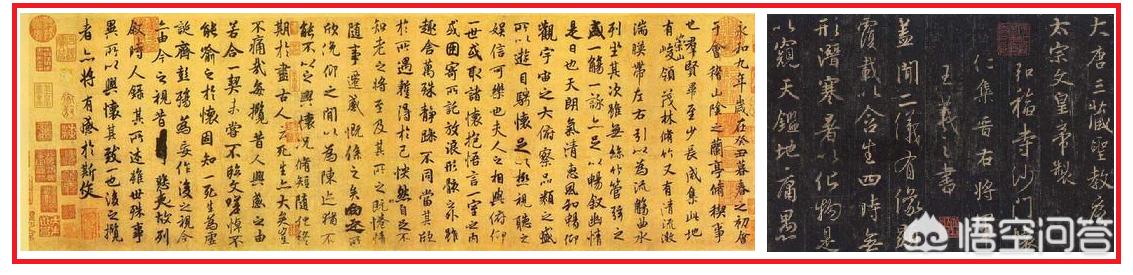 永和九年歲在癸丑暮春之初會
于會稽山陰之蘭亭脩稧事
也羣賢畢至少長咸集此地
有崇山峻領茂林脩竹又有清流激
湍暎帶左右引以為流觴曲水
列坐其次雖無絲竹管弦之
盛一觴一詠亦足以暢敘幽情
是日也天朗氣清惠風和暢仰
觀宇宙之大俯察品類之盛
所以遊目騁懷足以極視聽之
娛信可樂也夫人之相與俯仰
一世或取諸懷抱悟言一室之內
或因寄所託放浪形骸之外雖
趣舍萬殊靜躁不同當其欣
於所遇蹔得於己怏然自足不
知老之將至及其所之既惓情
隨事遷感慨係之矣向之所
欣俛仰之間以為陳迹猶不
能不以之興懷況脩短隨化終
期於盡古人云死生亦大矣豈
不痛哉每攬昔人興感之由
若合一契未嘗不臨文嗟悼不
能喻之於懷固知一死生為虛
誕齊彭殤為妄作後之視今
亦由今之視昔悲夫故列
敘時人錄其所述雖世殊事
異所以興懷其致一也後之攬
者亦將有感於斯文
大唐三藏聖教序
太宗文皇帝製
弘福寺沙門懷
仁集晉右將
王羲之書
蓋聞二儀有像
覆載以含生四時無
形潛寒暑以化物是
以窺天鑑地庸愚
悟空问答